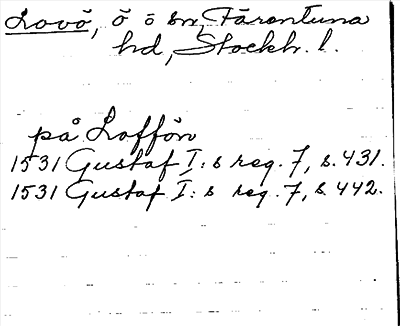 Lovö, ö o sn, Färentuna
hd, Stockh. l.
på Loffön
1531 Gustaf I:s reg. 7, s. 431.
1531 Gustaf I:s reg. 7, s. 442.